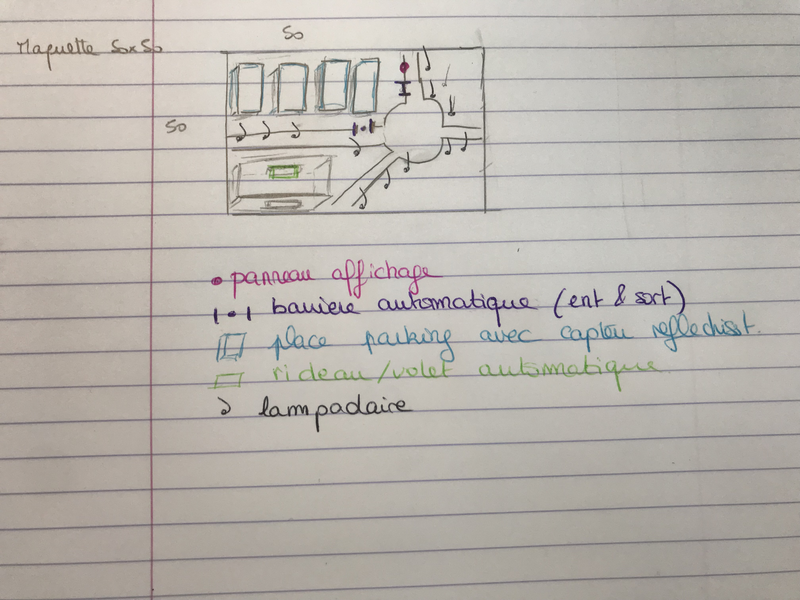 50
Maquette 50x50
50
panneau affichage
barriere automatique (ent & sort)
place parking avec capteu reflechisst.
rideau/volet automatique
lampadaire